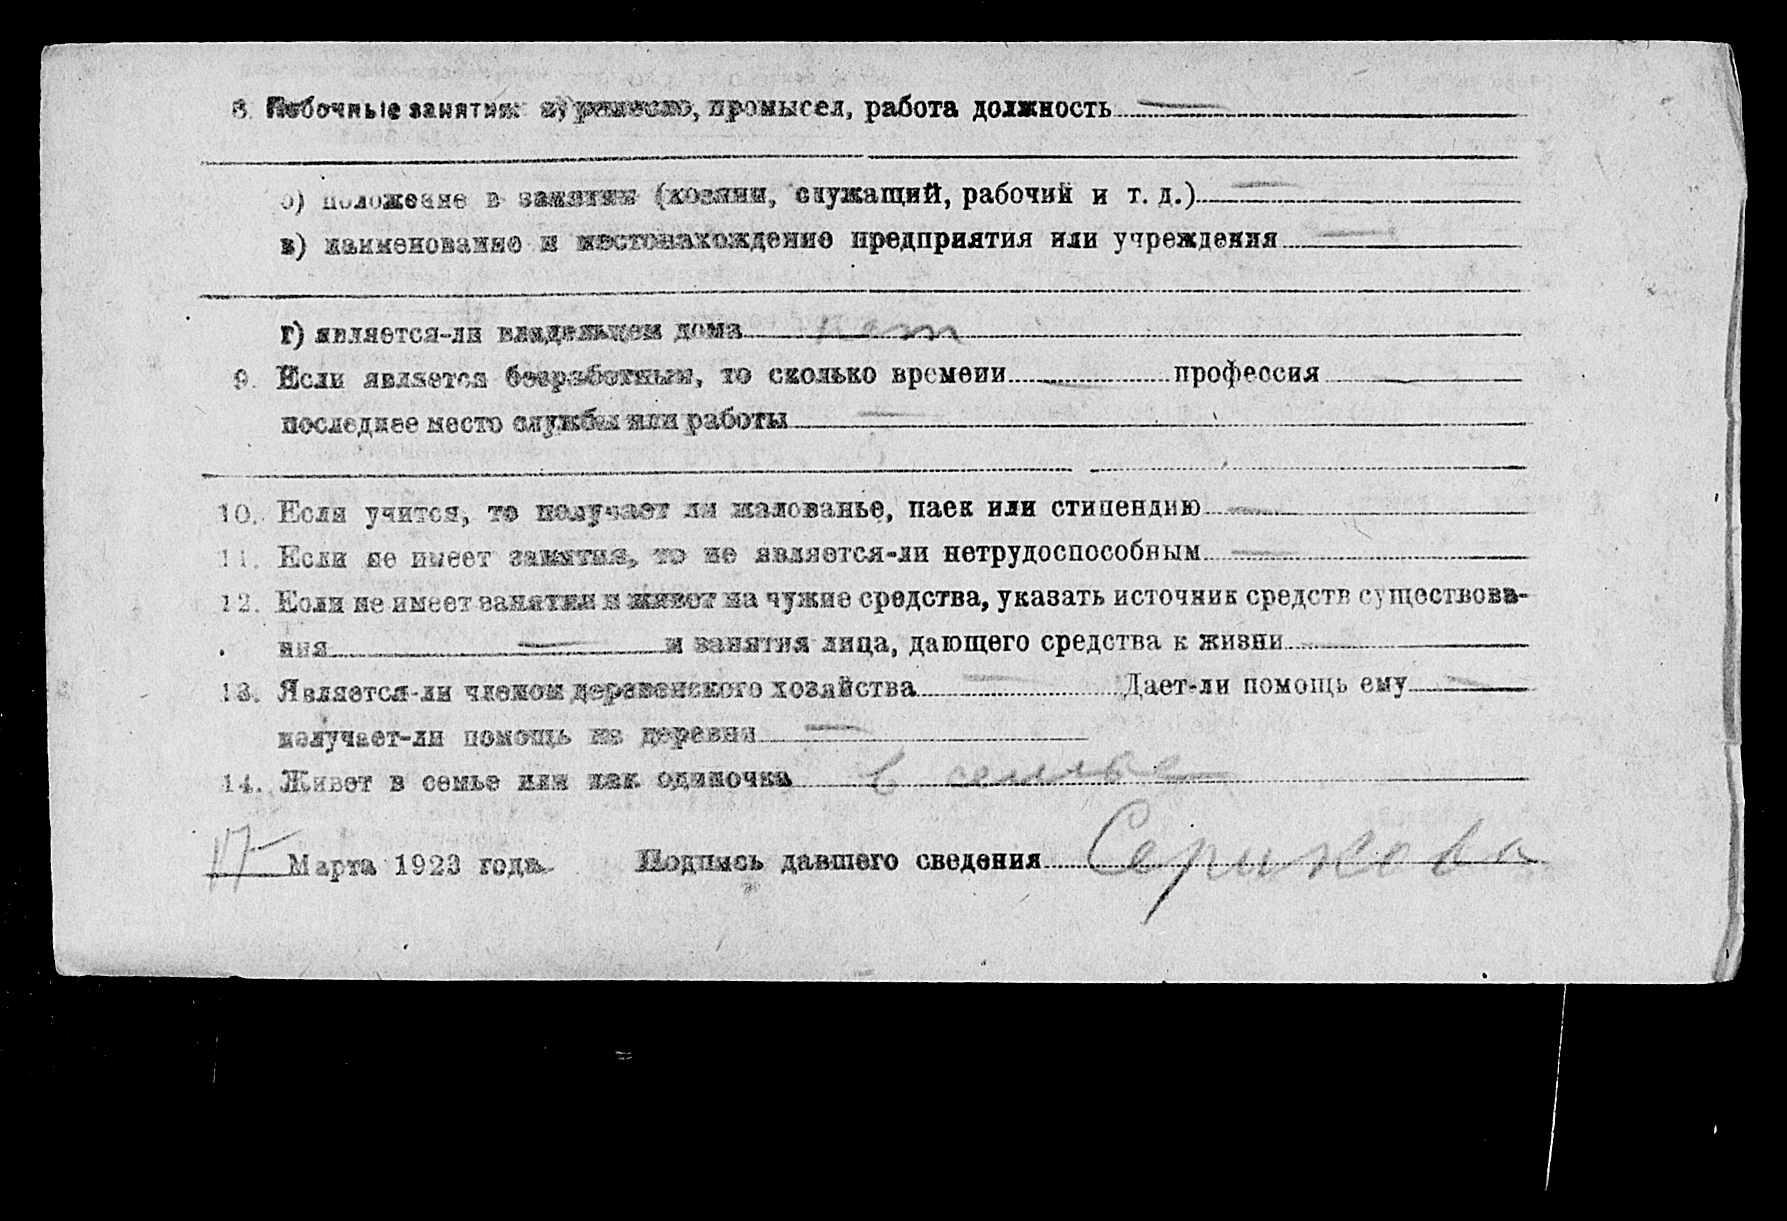 8. Побочные занятия: а) ремесло, промысел, работа должность —
б) положение в занятии (хозяин, служащий, рабочий и т. д.) —
в) наименование и местонахождение предприятия или учреждения —
г) является-ли владельцем дома нет
9. Если является безработным, то сколько времени — профессия —
последнее место службы или работы —
10. Если учится, то получает ли жалованье, паек или стипендию —
11. Если не имеет занятия, то не является-ли нетрудоспособным —
12. Если не имеет занятия и живет на чужие средства, указать источник средств существова-
ния — и занятия лица, дающего средства к жизни —
13. Является-ли членом деревенского хозяйства — Дает-ли помощь ему —
получает-ли помощь из деревни —
14. Живет в семье или как одиночка в семье
17 Марта 1923 года. Подпись давшего сведения Серикова